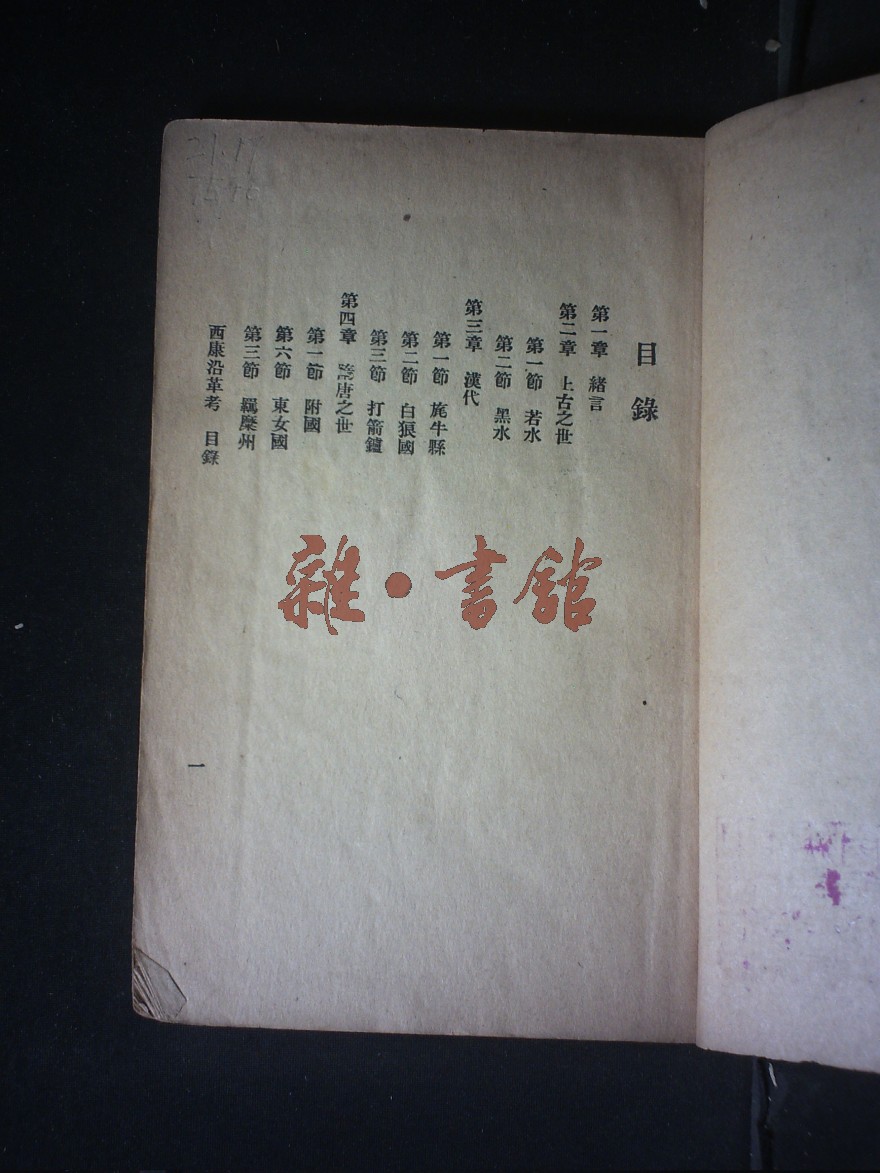 目錄
第一章 緒言
第二章 上古之世
第一節 若水
第二節 黑水
第三章 漢代
第一節 旄牛縣
第二節 白狼國
第三節 打箭鑪
第四章 隋唐之世
第一節 附國
第六節 東女國
第三節 羈縻州
西康沿革考 目錄
一
雜•書館